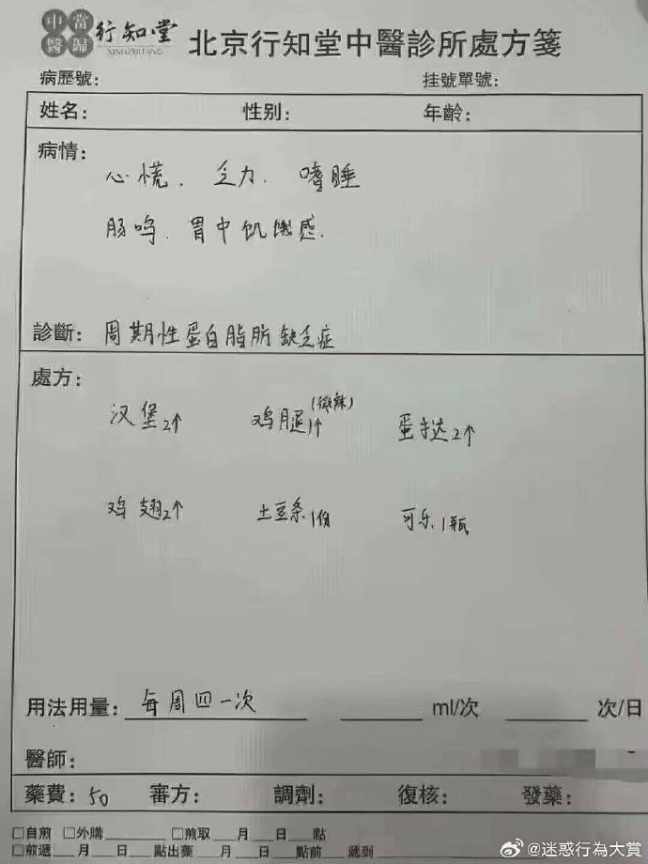 中當醫歸 行知堂 北京行知堂中醫診所處方箋
XINGZHITANG
病歷號： 挂號單號：
姓名： 性别： 年齡：
病情：
心慌、乏力、嗜睡
肠鸣、胃中饥饿感.
診斷： 周期性蛋白脂肪缺乏症
處方：
汉堡2个 鸡腿1个(微辣) 蛋挞2个
鸡翅2个 土豆条1份 可乐1瓶
用法用量： 每周四一次 ml/次 次/日
醫師：
藥費：50 審方： 調劑： 復核： 發藥：
□自煎 □外購 □煎取 月 日 點
□前遞 月 日 點出藥 月 日 點前 遞到
@迷惑行為大賞